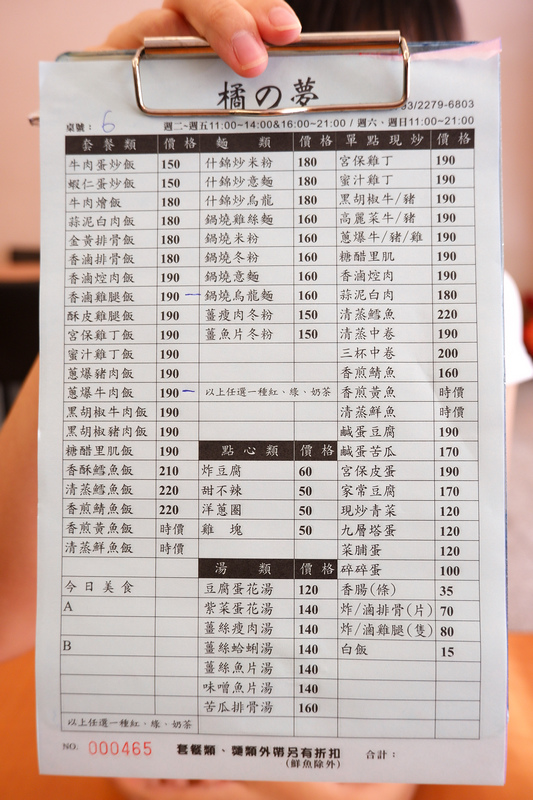 橘の夢
03/2279-6803
桌號： 6
週二~週五11:00~14:00&16:00~21:00 / 週六、週日11:00~21:00
套餐類 價格
牛肉蛋炒飯 150
蝦仁蛋炒飯 150
牛肉燴飯 180
蒜泥白肉飯 180
金黃排骨飯 180
香滷排骨飯 180
香滷焢肉飯 190
香滷雞腿飯 190 —
酥皮雞腿飯 190
宮保雞丁飯 190
蜜汁雞丁飯 190
蔥爆豬肉飯 190
蔥爆牛肉飯 190 —
黑胡椒牛肉飯 190
黑胡椒豬肉飯 190
糖醋里肌飯 190
香酥鱈魚飯 210
清蒸鱈魚飯 220
香煎鯖魚飯 220
香煎黃魚飯 時價
清蒸鮮魚飯 時價
今日美食
A
B
以上任選一種紅、綠、奶茶
麵類 價格
什錦炒米粉 180
什錦炒意麵 180
什錦炒烏龍 180
鍋燒雞絲麵 160
鍋燒米粉 160
鍋燒冬粉 160
鍋燒意麵 160
鍋燒烏龍麵 160
薑瘦肉冬粉 150
薑魚片冬粉 150
以上任選一種紅、綠、奶茶
點心類 價格
炸豆腐 60
甜不辣 50
洋蔥圈 50
雞塊 50
湯類 價格
豆腐蛋花湯 120
紫菜蛋花湯 140
薑絲瘦肉湯 140
薑絲蛤蜊湯 140
薑絲魚片湯 140
味噌魚片湯 140
苦瓜排骨湯 160
單點現炒 價格
宮保雞丁 190
蜜汁雞丁 190
黑胡椒牛/豬 190
高麗菜牛/豬 190
蔥爆牛/豬/雞 190
糖醋里肌 190
香滷焢肉 190
蒜泥白肉 180
清蒸鱈魚 220
清蒸中卷 190
三杯中卷 200
香煎鯖魚 160
香煎黃魚 時價
清蒸鮮魚 時價
鹹蛋豆腐 190
鹹蛋苦瓜 170
宮保皮蛋 190
家常豆腐 170
現炒青菜 120
九層塔蛋 120
菜脯蛋 120
碎碎蛋 100
香腸(條) 35
炸/滷排骨(片) 70
炸/滷雞腿(隻) 80
白飯 15
NO. 000465
套餐類、麵類外帶另有折扣
(鮮魚除外)
合計：